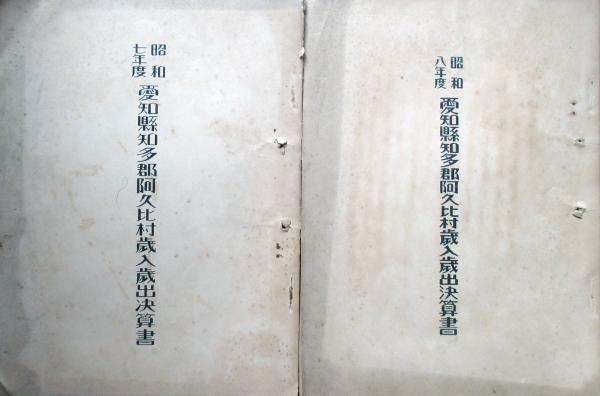 昭和
七年度
愛知縣知多郡阿久比村歳入歳出決算書
昭和
八年度
愛知縣知多郡阿久比村歳入歳出決算書